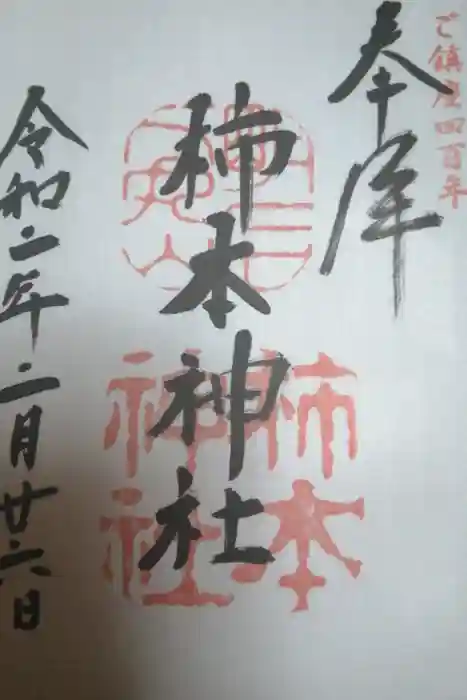 ご鎮座四百年
奉拝
柿本神社
柿本神社
令和二年二月廿六日